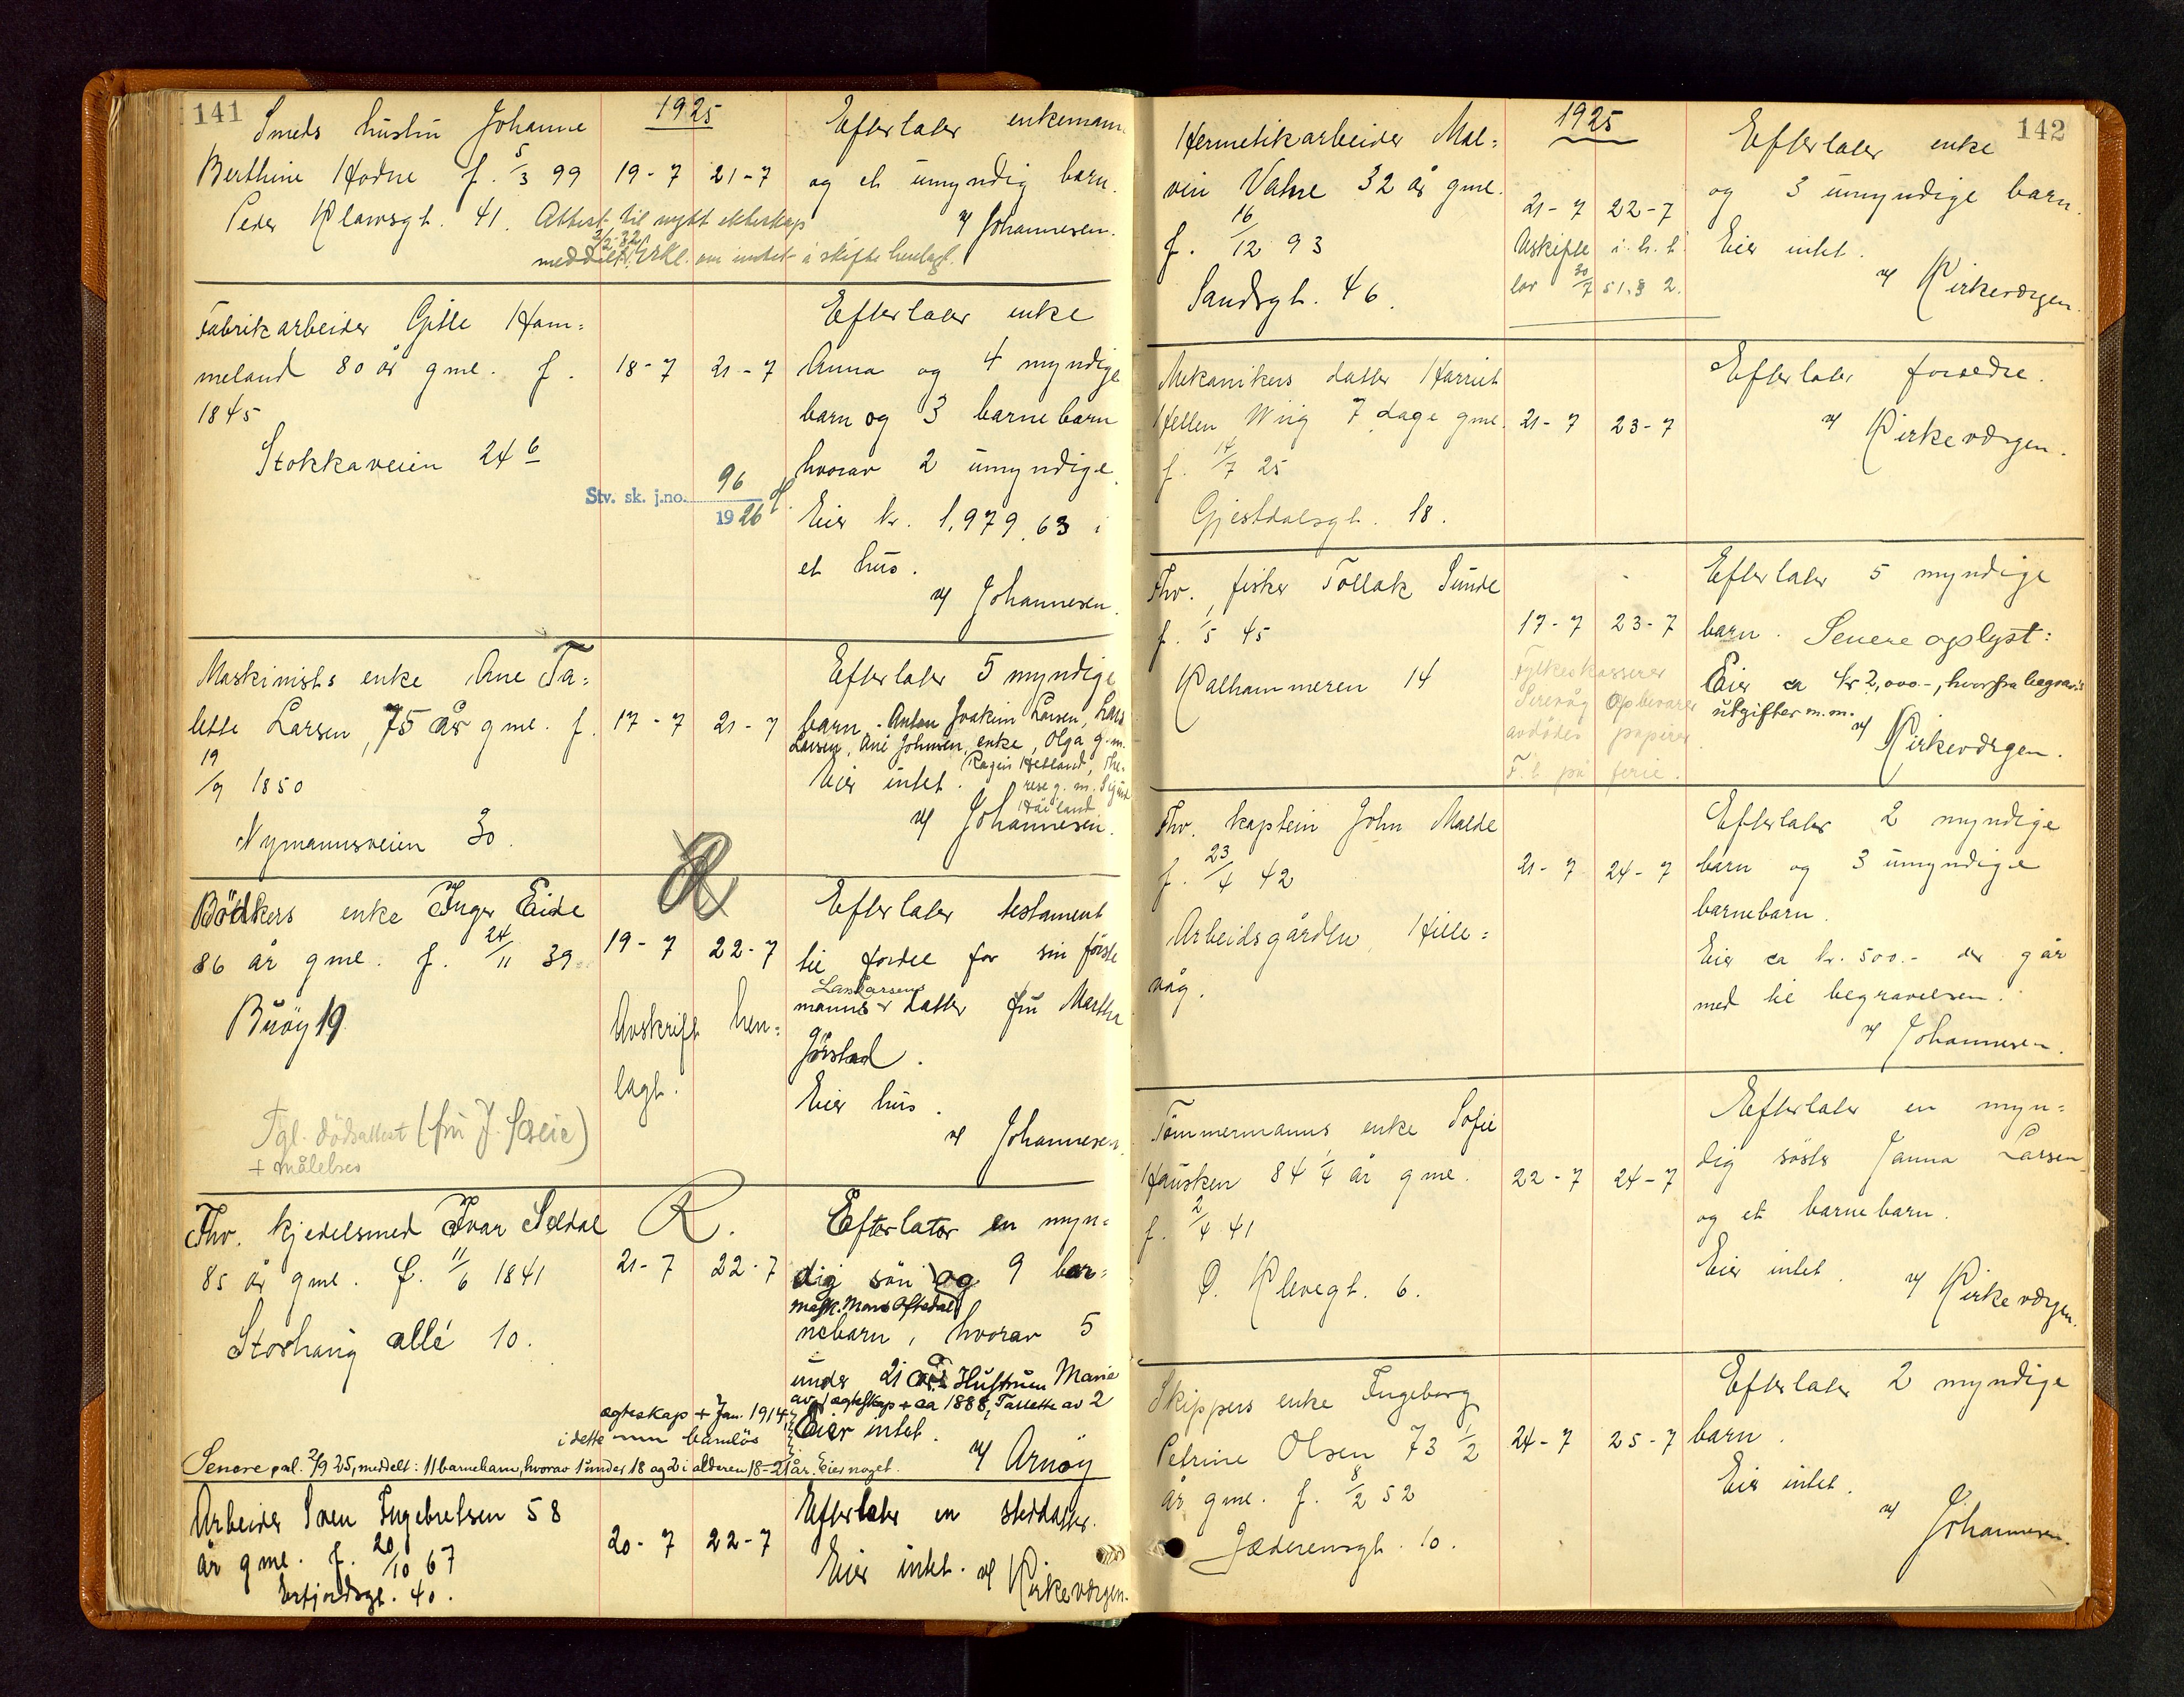 141
1925
Smeds hustru Johanne
Berthine Hodne f. 5/3 99
19-7 21-7
Efterlater enkemann
og et umyndig barn.
v/ Johannesen.
Peder Klowsgt. 41.
Attest til nytt ekteskap
meddelt. Erkl. om intet å skifte henlagt.
Fabrikarbeider Gitle Ham=
meland 80 år gml. f.
1845
Stokkaveien 24 b
18-7 21-7
Stv. sk. j.no. 96
1926
Efterlater enke
Anna og 4 myndige
barn og 3 barnebarn
hvorav 2 umyndige.
Eier kr. 1,979.63 i
et hus.
v/ Johannesen.
Maskinists enke Ane Ta=
lette Larsen, 75 år gml. f.
19/9 1850
Nymannsveien 30.
17-7 21-7
Efterlater 5 myndige
barn. - Anton Joakim Larsen, Lars
Larsen, Ane Johnsen, enke, Olga g.m.
Ragen Hetland, The-
rese g. m. Sigurd
Håvland
Eier intet.
v/ Johannesen.
Bödkers enke Inger Eide
86 år gml. f. 24/11 39
Buöy 19
Fgl. dödsattest (fru J. Sæie)
+ målebrev
R
19-7 22-7
Avskrift hen=
lagt.
Efterlater testament
til fordel for sin förste
manns Larsens datter fru Martha
Jörstad.
Eier hus.
v/ Johannesen.
Fhv. kjedelsmed Ivar Seldal
85 år gml. f. 11/6 1841
Storhaug allé 10.
R.
21-7 22-7
Efterlater en myn=
dig sön og 9 bar=
mask. Mons Oftedal
nebarn, hvorav 5
under 21 år. Hustruen Marie
av 1 ægteskap + ca 1888, Tallette av 2
ægteskap + Jan. 1914,
i dette barnlös
Eier intet.
v/ Arnöy
Senere pal. 2/9 25, meddelt: 11 barnebarn, hvorav 1 under 18 og 2 i alderen 18-21 år. Eier noget.
Arbeider Sven Ingebretsen 58
år gml. f. 20/10 67
Erfjordsgt. 40.
20-7 22-7
Efterlater en steddatter.
Eier intet. v/ Kirkeværgen.
142
1925
Hermetikarbeider Mal=
vin Vatne 32 år gml.
f. 16/12 93
Sandsgt. 46.
21-7 22-7
Avskifte i. h. t.
lov 30/7 51 § 2.
Efterlater enke
og 3 umyndige barn.
Eier intet.
v/ Kirkeværgen.
Mekanikers datter Harriet
Hellen Wiig 7 dage gml.
f. 14/7 25
Gjesdalsgt. 18.
21-7 23-7
Efterlater forældre.
v/ Kirkeværgen.
Fhv. fisker Tollak Sunde
f. 1/5 45
Kalhammeren 14
17-7 23-7
Fylkeskasserer
Sirevåg opbevarer
avdödes papirer
F. t. på ferie.
Efterlater 5 myndige
barn. Senere oplyst:
Eier ca kr 2,000.-, hvorfra begravels
utgifter m.m.
v/ Kirkeværgen.
Fhv. kaptein John Malde
f. 23/4 42
Arbeidsgården, Hille=
våg.
21-7 24-7
Efterlater 2 myndige
barn og 3 umyndige
barnebarn.
Eier ca kr. 500.- der går
med til begravelsen.
v/ Johannesen.
Tömmermanns enke Sofie
Hausken 84 1/4 år gml.
f. 2/4 41
Ö. Klevegt. 6.
22-7 24-7
Efterlater en myn=
dig söster Janna Larsen
og et barnebarn.
Eier intet.
v/ Kirkeværgen.
Skippers enke Ingeborg
Petrine Olsen 73 1/2
år gml. f. 8/2 52
Jæderensgt. 10.
24-7 25-7
Efterlater 2 myndige
barn.
Eier intet.
v/ Johannesen.